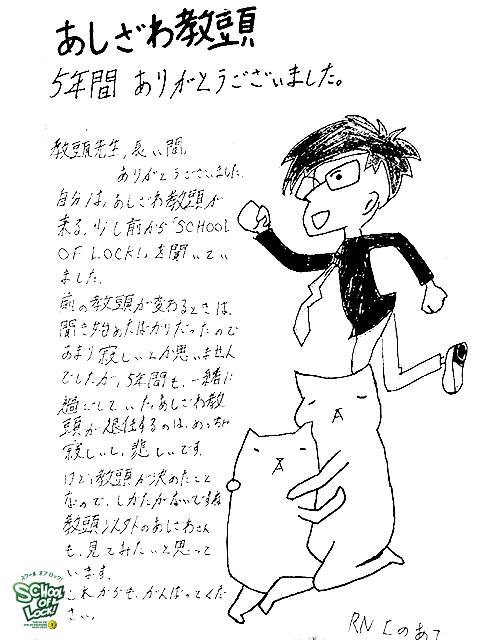 あしざわ教頭
5年間 ありがとうございました。
教頭先生, 長い間,
ありがとうございました.
自分は, あしざわ教頭が
来る, 少し前から「SCHOOL
OF LOCK!」を聞いてい
ました.
前の教頭が変わるときは,
聞き始めたばかりだったので
あまり寂しいとか思いません
でしたが, 5年間も, 一緒に
過ごしていた, あしざわ教
頭が退任するのは, めっちゃ
寂しいし, 悲しいです.
けど, 教頭が決めたこと
なので, しかたがないですね
教頭以外のあしざわさん
も, 見てみたいと思って
います.
これからも, がんばってくだ
さい.
スクール オブ ロック!
SCHOOL
OF
LOCK!
RN このあ